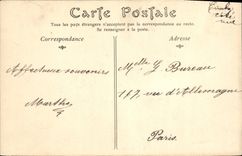 Carte Postale
Tous les pays étrangers n'acceptent pas la correspondance au recto.
Se renseigner à la poste.
Correspondance
Adresse
Affectueux souvenirs
Marthe
Mlle J Bureau
117 rue d'Allemagne
Paris